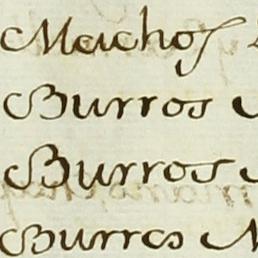 Machos
Burros
Burros
Burros